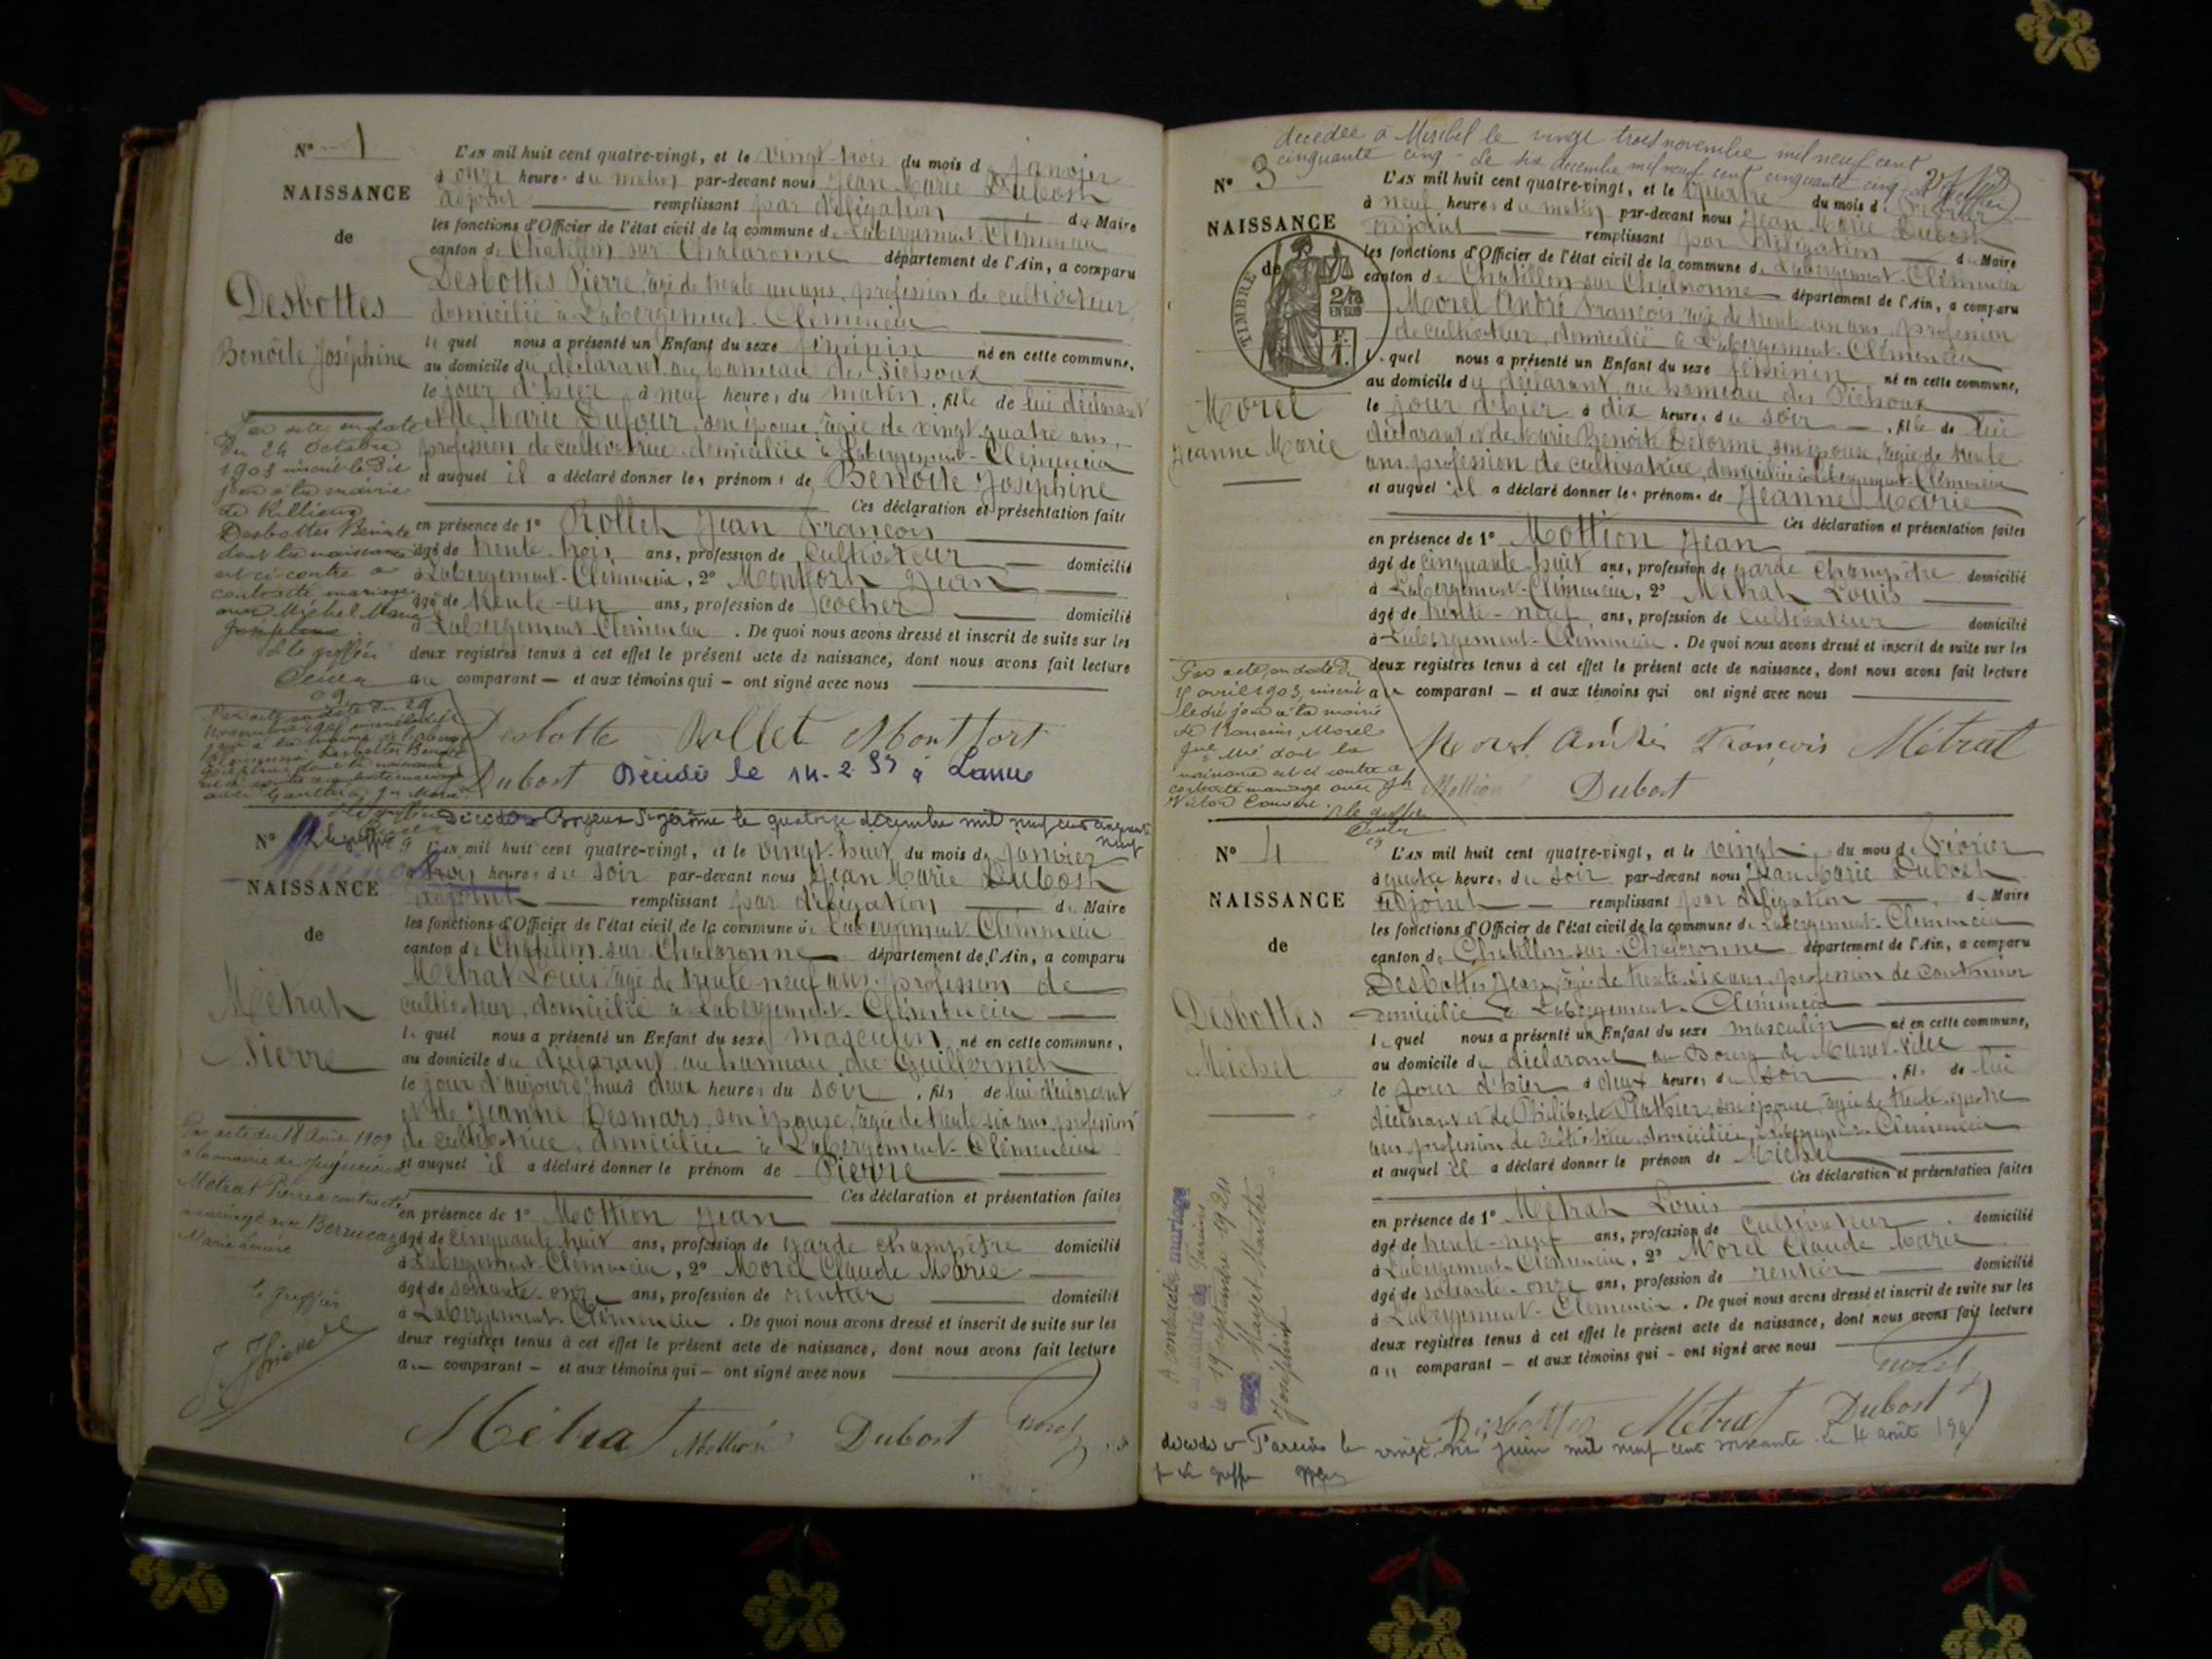 N° 1
NAISSANCE
de
Desbottes
Benoîte Joséphine
L'AN mil huit cent quatre-vingt, et le vingt-trois du mois de janvier
à onze heures du matin par-devant nous Jean Marie Dubost
adjoint remplissant par délégation du Maire
les fonctions d'Officier de l'état civil de la commune de Labergement-Clémencia
canton de Chatillon sur Chalaronne département de l'Ain, a comparu
Desbottes Pierre, âgé de trente un ans, profession de cultivateur
domicilié à Labergement-Clémencia
le quel nous a présenté un Enfant du sexe féminin né en cette commune,
au domicile du déclarant au hameau des Pichoux
le jour d'hier à neuf heures du matin, fille de lui déclarant
et de Marie Dufour, son épouse, âgée de vingt quatre ans,
profession de cultivatrice domiciliée à Labergement-Clémencia
et auquel il a déclaré donner les prénoms de Benoîte Joséphine
Ces déclaration et présentation faites
en présence de 1° Rollet Jean François
âgé de trente-trois ans, profession de cultivateur domicilié
à Labergement-Clémencia, 2° Montfort Jean
âgé de trente-un ans, profession de cocher domicilié
à Labergement-Clémencia. De quoi nous avons dressé et inscrit de suite sur les
deux registres tenus à cet effet le présent acte de naissance, dont nous avons fait lecture
au comparant — et aux témoins qui — ont signé avec nous
Par acte en date
du 24 Octobre
1903 inscrit le dit
jour à la mairie
de Rillieux
Desbottes Benoîte
dont la naissance
est ci-contre a
contracté mariage
avec Michel Marie
Joséphine
Le greffier
Desbotte Rollet Montfort
Dubost Décédée le 14.2.53 à
Par acte en date du 29
novembre
Desbottes Benoîte
N° 2
NAISSANCE
de
Métrat
Pierre
Décédé à St Jérôme le quatorze décembre mil neuf cent cinquante
neuf
L'AN mil huit cent quatre-vingt, et le vingt-huit du mois de janvier
à trois heures du soir par-devant nous Jean Marie Dubost
adjoint remplissant par délégation du Maire
les fonctions d'Officier de l'état civil de la commune de Labergement-Clémencia
canton de Chatillon sur Chalaronne département de l'Ain, a comparu
Métrat Louis, âgé de trente neuf ans, profession de
cultivateur, domicilié à Labergement-Clémencia
le quel nous a présenté un Enfant du sexe masculin né en cette commune,
au domicile du déclarant au hameau de Guillermet
le jour d'aujourd'hui à deux heures du soir, fils de lui déclarant
et de Jeanne Desmars, son épouse, âgée de trente six ans, profession
de cultivatrice, domiciliée à Labergement-Clémencia
et auquel il a déclaré donner le prénom de Pierre
Ces déclaration et présentation faites
en présence de 1° Mottion Jean
âgé de cinquante huit ans, profession de garde champêtre domicilié
à Labergement-Clémencia, 2° Morel Claude Marie
âgé de soixante-onze ans, profession de rentier domicilié
à Labergement-Clémencia. De quoi nous avons dressé et inscrit de suite sur les
deux registres tenus à cet effet le présent acte de naissance, dont nous avons fait lecture
au comparant — et aux témoins qui — ont signé avec nous
Par acte du 18 Août 1909
à la mairie de Jujurieux
Métrat Pierre a contracté
mariage avec
Marie Louise
Le greffier
Métrat Mottion Dubost Morel
décédée à Miribel le vingt trois novembre mil neuf cent
cinquante cinq - Le six décembre mil neuf cent cinquante cinq
N° 3
NAISSANCE
de
TIMBRE
2/10
EN SUS
F.
1.
Morel
Jeanne Marie
L'AN mil huit cent quatre-vingt, et le quatre du mois de Février
à neuf heures du matin par-devant nous Jean Marie Dubost
adjoint remplissant par délégation du Maire
les fonctions d'Officier de l'état civil de la commune de Labergement-Clémencia
canton de Chatillon sur Chalaronne département de l'Ain, a comparu
Morel André François, âgé de trente un ans, profession
de cultivateur, domicilié à Labergement-Clémencia
le quel nous a présenté un Enfant du sexe féminin né en cette commune,
au domicile du déclarant au hameau des Pichoux
le jour d'hier à dix heures du soir, fille de lui
déclarant et de Marie Benoîte Delorme, son épouse, âgée de trente
ans, profession de cultivatrice, domiciliée à Labergement-Clémencia
et auquel il a déclaré donner les prénoms de Jeanne Marie
Ces déclaration et présentation faites
en présence de 1° Mottion Jean
âgé de cinquante-huit ans, profession de garde champêtre domicilié
à Labergement-Clémencia, 2° Métrat Louis
âgé de trente-neuf ans, profession de cultivateur domicilié
à Labergement-Clémencia. De quoi nous avons dressé et inscrit de suite sur les
deux registres tenus à cet effet le présent acte de naissance, dont nous avons fait lecture
au comparant — et aux témoins qui ont signé avec nous
Par acte en date du
15 avril 1903, inscrit
le dit jour à la mairie
de Romans, Morel
Jne Mie dont la
naissance est ci contre a
contracté mariage avec Jh
Victor
p. le greffier
Morel André François Métrat
Mottion Dubost
N° 4
NAISSANCE
de
Desbottes
Michel
L'AN mil huit cent quatre-vingt, et le vingt du mois de Février
à quatre heures du soir par-devant nous Jean Marie Dubost
adjoint remplissant par délégation du Maire
les fonctions d'Officier de l'état civil de la commune de Labergement-Clémencia
canton de Chatillon sur Chalaronne département de l'Ain, a comparu
Desbottes Jean, âgé de trente six ans, profession de cantonnier
domicilié à Labergement-Clémencia
le quel nous a présenté un Enfant du sexe masculin né en cette commune,
au domicile du déclarant au Bourg de
le jour d'hier à deux heures du soir, fils de lui
déclarant et de Philiberte Plattier, son épouse, âgée de trente-quatre
ans, profession de cultivatrice domiciliée à Labergement-Clémencia
et auquel il a déclaré donner le prénom de Michel
Ces déclaration et présentation faites
en présence de 1° Métrat Louis
âgé de trente-neuf ans, profession de cultivateur domicilié
à Labergement-Clémencia, 2° Morel Claude Marie
âgé de soixante-onze ans, profession de rentier domicilié
à Labergement-Clémencia. De quoi nous avons dressé et inscrit de suite sur les
deux registres tenus à cet effet le présent acte de naissance, dont nous avons fait lecture
au comparant — et aux témoins qui — ont signé avec nous
A contracté mariage
à la mairie de Parcieux
le 19 septembre 1924
avec Maget Marthe
Joséphine
Morel
Desbottes Métrat Dubost
décédé à Parcieux le vingt six juin mil neuf cent soixante. Le 4 août 1960
p. le greffier